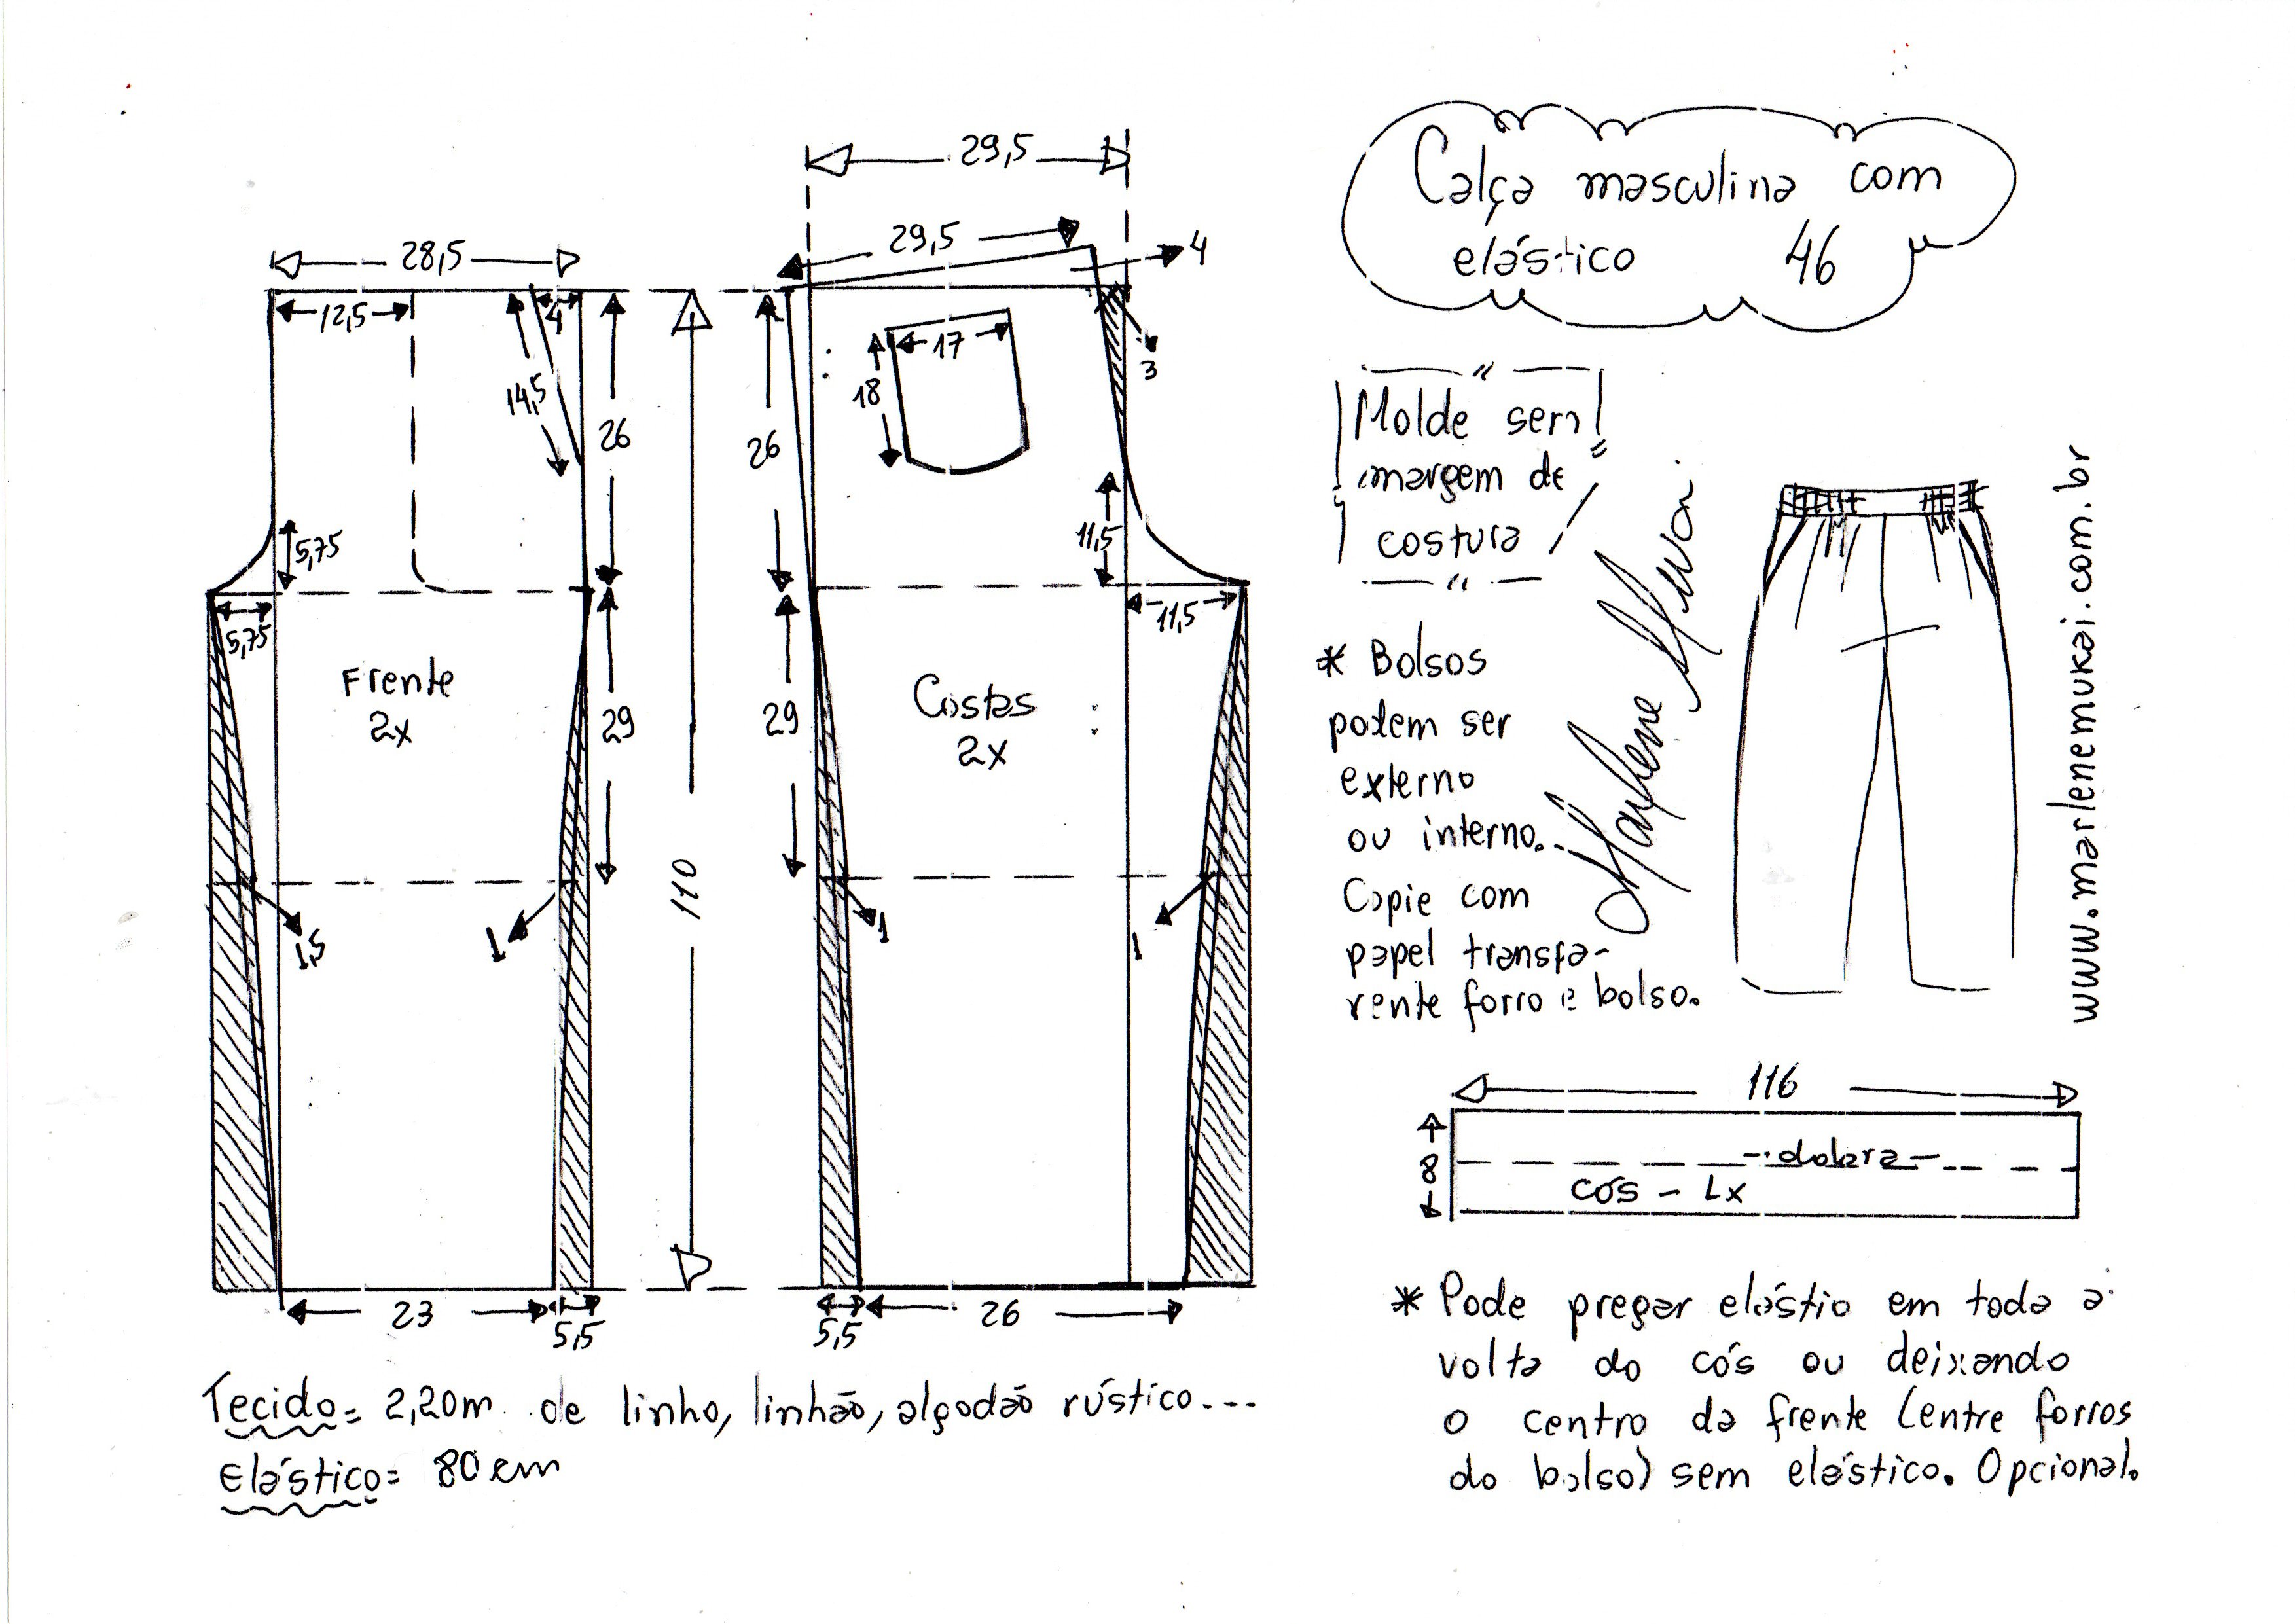 Calça masculina com
elástico 46
29,5
29,5
4
28,5
12,5
4
14,5
26
26
17
18
3
5,75
11,5
5,75
11,5
Frente
2x
29
29
Costas
2x
110
1,5
1
1
1
23
5,5
5,5
26
Tecido= 2,20m de linho, linhão, algodão rústico...
Elástico= 80 cm
Molde sem
margem de
costura
* Bolsos
podem ser
externo
ou interno.
Copie com
papel transpa-
rente forro e bolso.
Marlene Mukai
www.marlenemukai.com.br
116
8
dobra
cós - 1x
* Pode pregar elástio em toda a
volta do cós ou deixando
o centro da frente (entre forros
do bolso) sem elástico. Opcional.